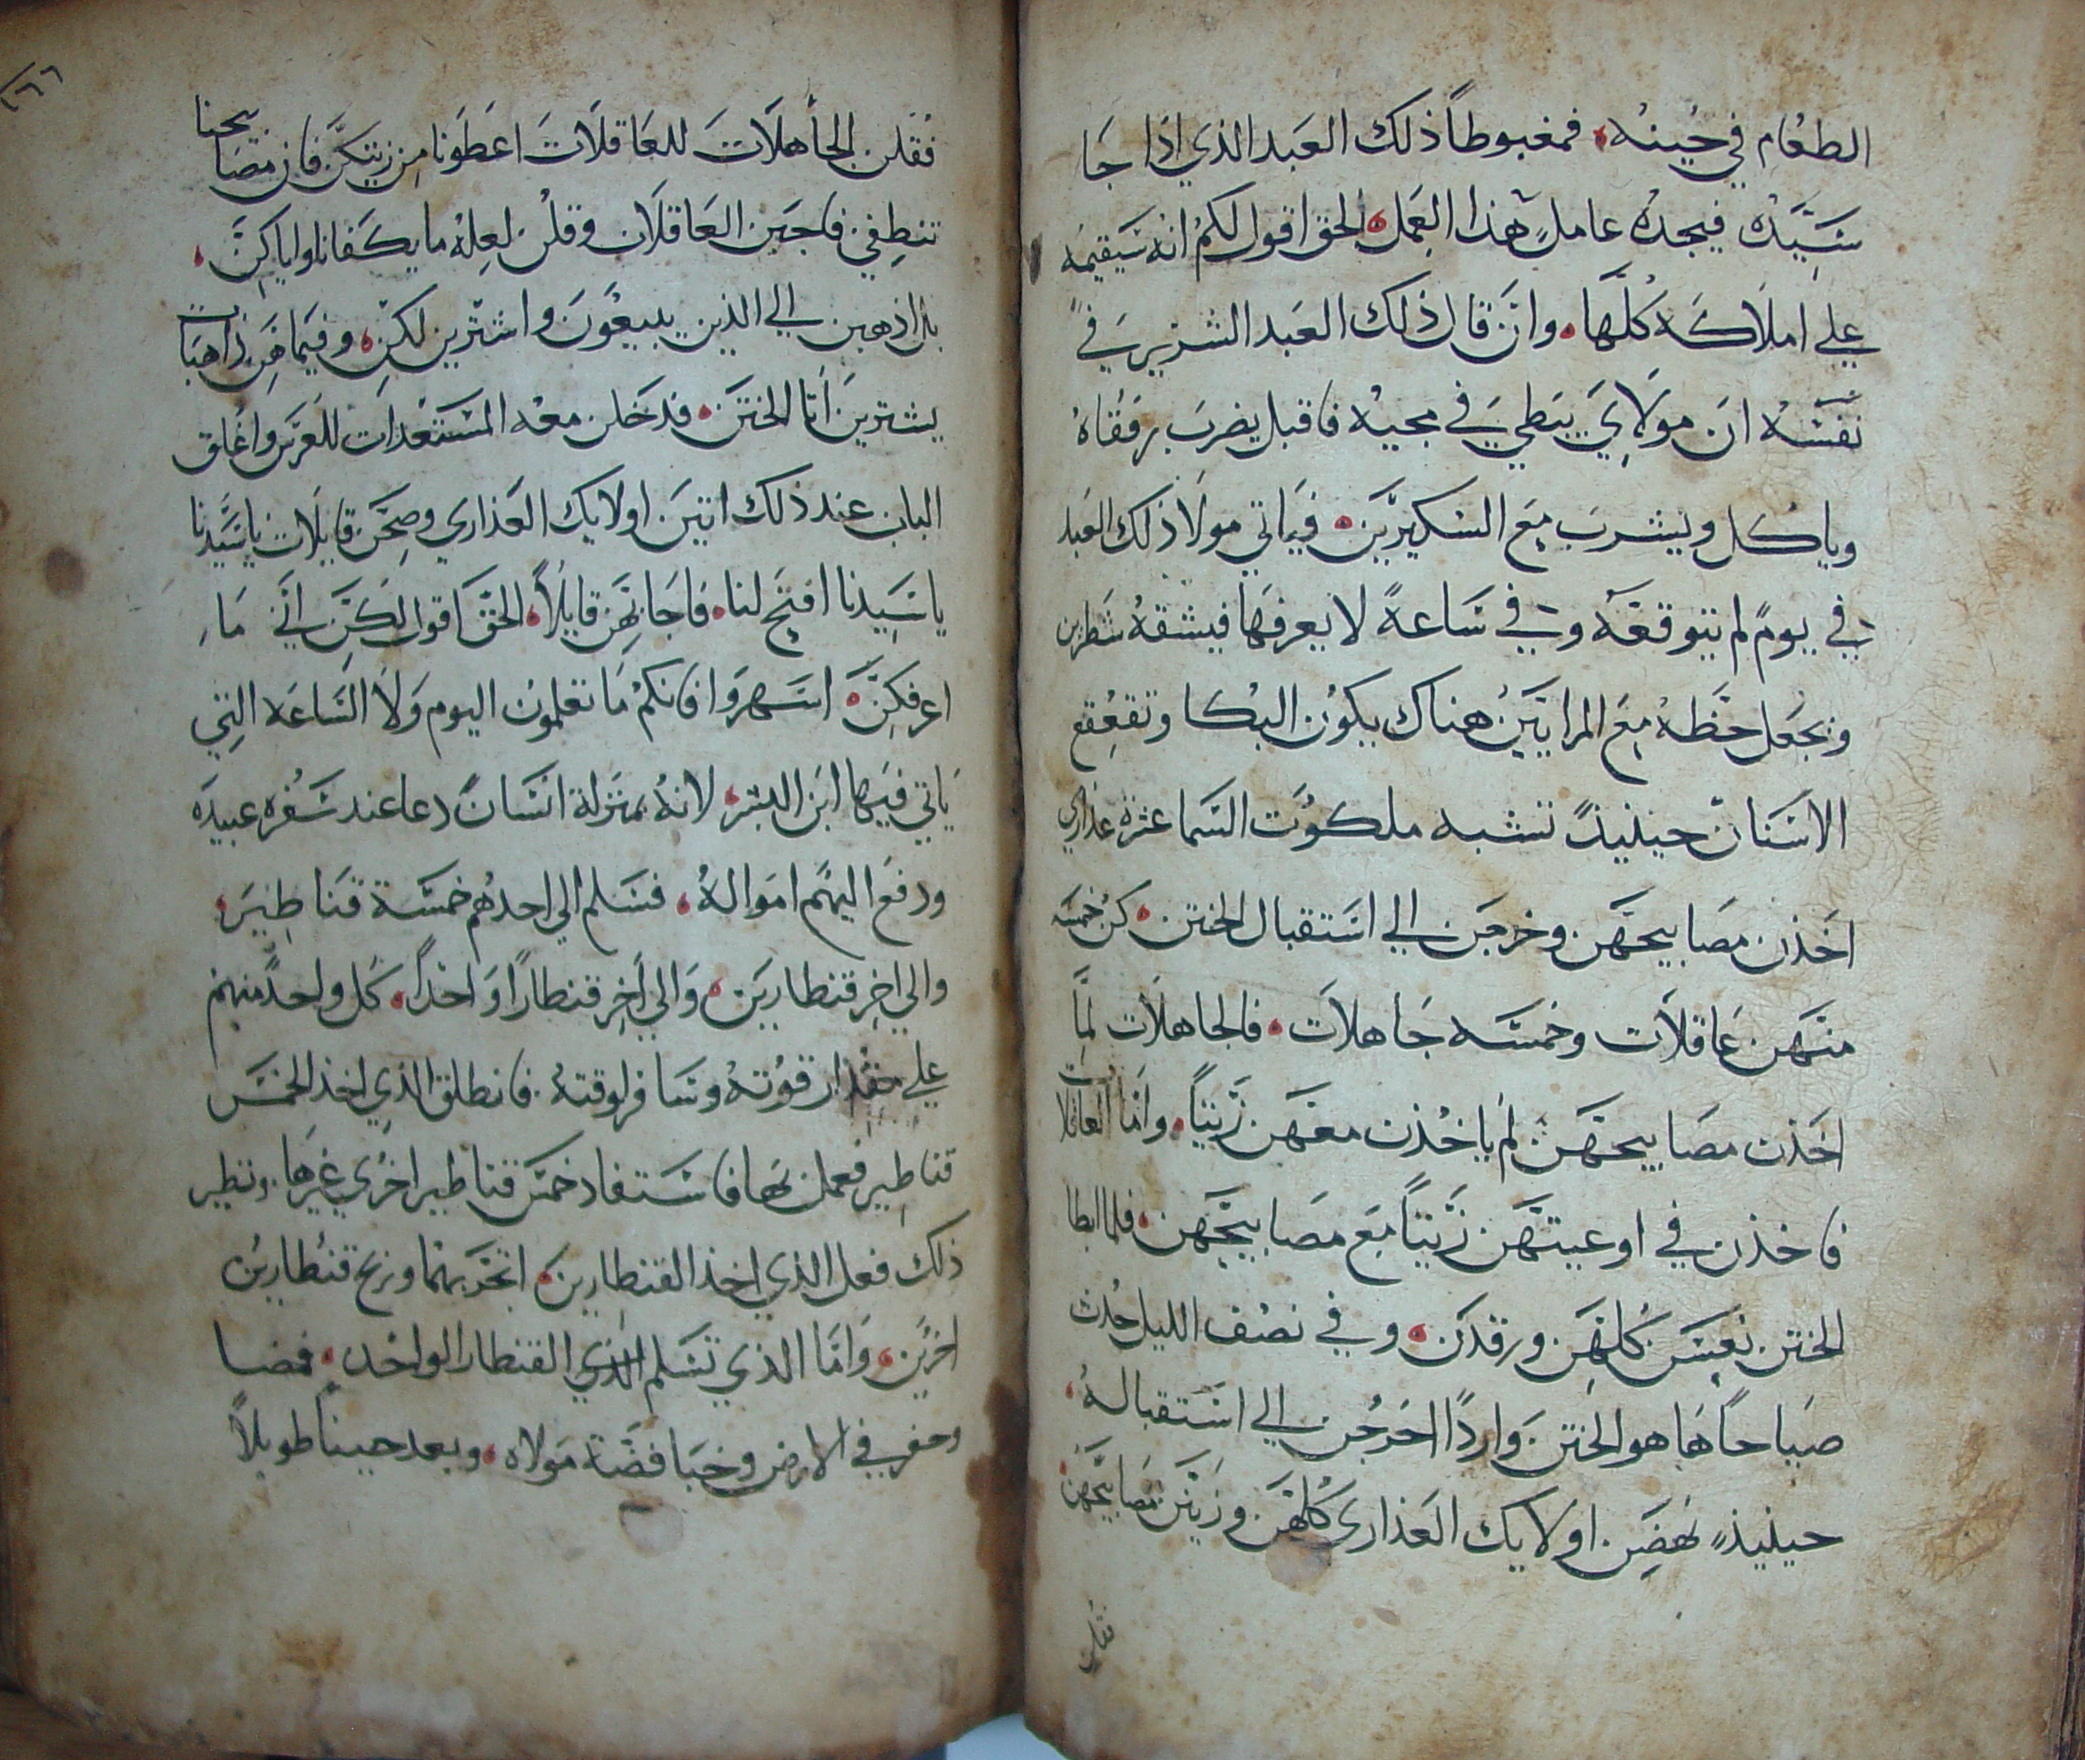 الطعام في حينه، فمغبوطاً ذلك العبد الذي اذا جا
سيده فيجده عاملٍ هذا العمل، الحق اقول لكم انه سيقيمه
علي املاكه كلها، وان قال ذلك العبد الشرير في
نفسه ان مولاي يبطي في مجيه فاقبل يضرب رفقاه
وياكل ويشرب مع السكيريين، فياتي مولا ذلك العبد
في يومٍ لم يتوقعه وفي ساعةً لا يعرفها فيشقه شطرين
ويجعل حظه مع المراييين هناك يكون البكا وتقعقع
الاسنان حينيذً تشبه ملكوت السما عشرة عذاري
اخذن مصابيحهن وخرجن الي استقبال الختن، كن خمسه
منهن عاقلات وخمسه جاهلات، فالجاهلات لما
اخذن مصابيحهن لم ياخذن معهن زيتاً، واما العاقلات
فاخذن في اوعيتهن زيتاً مع مصابيحهن، فلما ابطا
الختن نعسن كلهن ورقدن، وفي نصف الليل حدث
صياحاً ها هو الختن وارداً اخرجن الي استقباله،
حينيذٍ نهضن اولايك العذاري كلهن وزين مصابيحهن،
فقلن
٢٦٦
فقلن الجاهلات للعاقلات اعطونا من زيتكن فان مصابيحنا
تنطفي فاجبن العاقلات وقلن لعله ما يكفانا واياكن،
بل اذهبن الي الذين يبيعون واشترين لكن، وفيما هن ذاهبات
يشترين اتا الختن، فدخلن معه المستعدات للعرس واغلق
الباب عند ذلك اتين اولايك العذاري وصحن قايلات يا سيدنا
يا سيدنا افتح لنا، فاجابهن قايلاً، الحق اقول لكن اني ما
اعرفكن، اسهروا فانكم ما تعلمون اليوم ولا الساعه التي
ياتي فيها ابن البشر، لانه بمنزلة انسان دعا عند سفره عبيده
ودفع اليهم امواله، فسلم الي احدهم خمسة قناطير،
والي اخر قنطارين، والي اخر قنطاراً واحداً، كل واحدً منهم
علي مقدار قوته وسافر لوقته. فانطلق الذي اخذ الخمس
قناطير فعمل بها فاستفاد خمس قناطير اخري غيرها. ونظير
ذلك فعل الذي اخذ القنطارين، اتجر بهما وربح قنطارين
اخرين، واما الذي تسلم الذي القنطار الواحد، فمضا
وحفر في الارض وخبا فضة مولاه، وبعد حيناً طويلاً